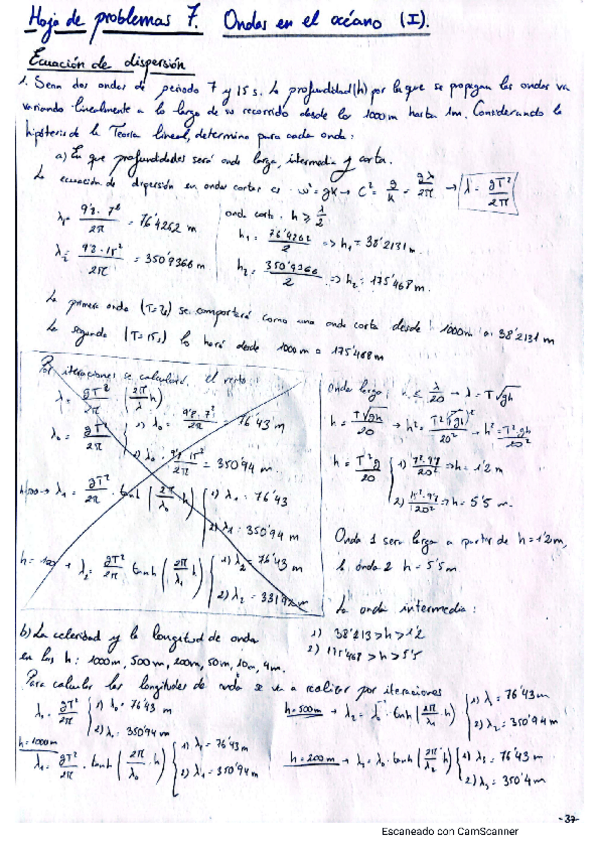 Hoja de problemas 7. Ondas en el océano (I).
Ecuación de dispersión
1. Sean dos ondas de periodo 7 y 15 s. La profundidad (h) por la que se propagan las ondas va
variando linealmente a lo largo de su recorrido desde los 1000m hasta 1m. Considerando la
hipótesis de la Teoría lineal, determina para cada onda:
a) En que profundidades será onda larga, intermedia y corta.
La ecuación de dispersión en ondas cortas es: ω² = gK → C² = g/K = gλ/2π → λ = gT²/2π
λ₁ = 9'8 · 7²/2π = 76'4262 m
λ₂ = 9'8 · 15²/2π = 350'9366 m
onda corta: h ≥ λ/2
h₁ = 76'4262/2 ⇒ h₁ = 38'2131 m.
h₂ = 350'9366/2 ⇒ h₂ = 175'468 m.
La primera onda (T=7s) se comportará como una onda corta desde 1000m a 38'2131 m
La segunda (T=15s) lo hará desde 1000m a 175'468 m
Por iteraciones se calculará el resto:
λ = gT²/2π (2π/λ h)
λ₀ = gT²/2π
1) λ₀ = 9'8 · 7²/2π = 76'43 m
2) λ₀ = 9'8 · 15²/2π = 350'94 m.
λ₁ = gT²/2π · tanh (2π/λ₀ h) 1) λ₁ = 76'43
2) λ₁ = 350'94 m
h = 100 → λ₂ = gT²/2π tanh (2π/λ₁ h) 1) λ₂ = 76'43 m
Onda larga: h ≤ λ/20 → λ = T√gh
h = T√gh/20 → h² = T²(√gh)²/20² → h² = T² gh/20²
1) 7² · 9'8/20² ⇒ h = 1'2 m
2) 15² · 9'8/20² ⇒ h = 5'5 m.
Onda 1 será larga a partir de h = 1'2m,
la onda 2 h = 5'5 m
La onda intermedia:
1) 38'213 > h > 1'2
2) 175'468 > h > 5'5
b) La celeridad y la longitud de onda
en los h: 1000m, 500m, 200m, 50m, 10m, 4m.
Para calcular las longitudes de onda se va a realizar por iteraciones
λ₀ = gT²/2π 1) λ₀ = 76'43 m
2) λ₀ = 350'94 m
h=1000m
λ₁ = gT²/2π · tanh (2π/λ₀ · h) 1) λ₁ = 76'43 m
2) λ₁ = 350'94 m
h=500m → λ₂ = tanh (2π/λ₁ h) 1) λ = 76'43 m
2) λ₂ = 350'94 m
h=200m → λ₃ = λ₀ · tanh (2π/λ₂ h) 1) λ₃ = 76'43 m
2) λ₃ = 350'4 m
-37-
Escaneado con CamScanner